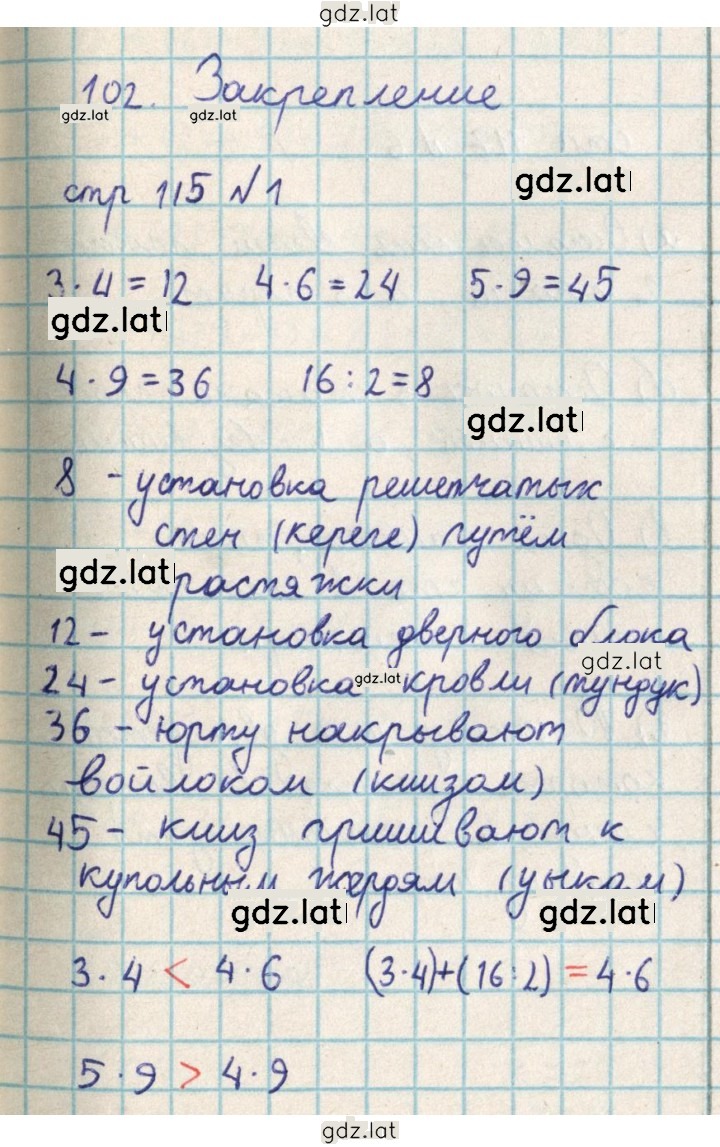 gdz.lat
102. Закрепление
gdz.lat gdz.lat
стр 115 №1 gdz.lat
3·4=12 4·6=24 5·9=45
gdz.lat
4·9=36 16:2=8
gdz.lat
8 - установка решетчатых
стен (кереге) путём
gdz.lat растяжки
12 - установка дверного блока
gdz.lat
24 - установка gdz.lat кровли (тундук)
36 - юрту накрывают
войлоком (киизом)
45 - кииз пришивают к
купольным жердям (уыкам)
gdz.lat gdz.lat
3·4 < 4·6 (3·4)+(16:2) = 4·6
5·9 > 4·9
gdz.lat